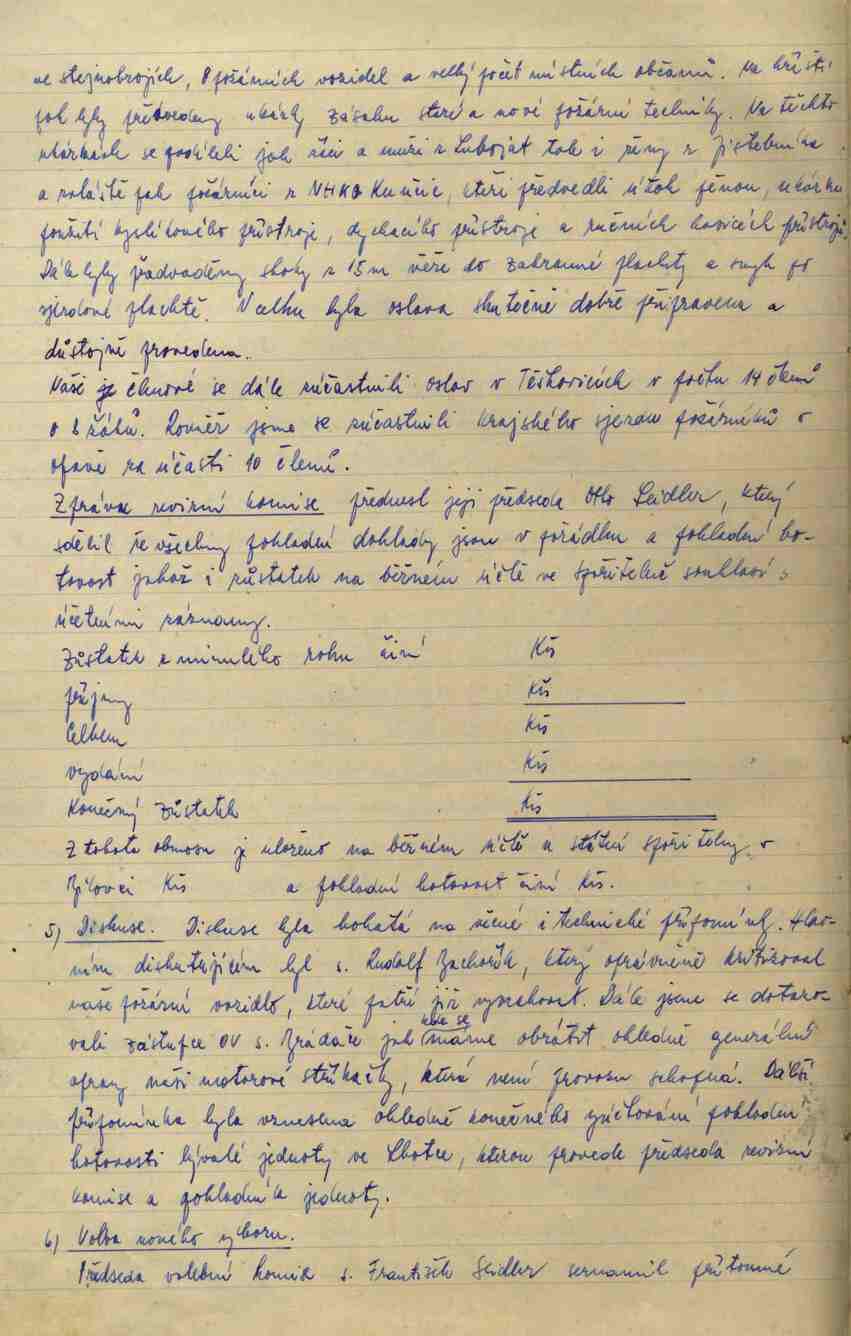 ve stejnokrojích, 8 požárních vozidel a velký počet místních občanů. Na hřišti
pak byly předvedeny ukázky zásahu staré a nové požární techniky. Na těchto
ukázkách se podíleli jak žáci a muži z Luboját tak i ženy z Jistebníka
a zvláště pak požárníci z NHKG Kunčic, kteří předvedli útok pěnou, ukázku
použití kyslíkového přístroje, dychacího přístroje a ručních hasících přístrojů.
Dále byly předváděny skoky z 15 m věže do záchranné plachty a  po
sjezdové plachtě. V celku byla oslava skutečně dobře připravena a
důstojně provedena.
Naši členové se dále zúčastnili oslav v Těškovicích v počtu 14 členů
a 8 žáků. Rovněž jsme se zúčastnili Krajského sjezdu požárníků v
Opavě za účasti 10 členů.
Zpráva revizní komise přednesl její předseda Otto Seidler, který
sdělil že všechny pokladní doklady jsou v pořádku a pokladní ho-
tovost jakož i zůstatek na běžném účtě ve spořitelně souhlasí s
účetními záznamy.
Zůstatek z minulého roku činí Kčs
příjmy Kčs
Celkem Kčs
vydání Kčs
Konečný zůstatek Kčs
Z tohoto obnosu je uloženo na běžném účtě u státní spořitelny v
Bílovci Kčs a pokladní hotovost činí Kčs.
5) Diskuse. Diskuse byla bohatá na věcné i technické připomínky. Hlav-
ním diskutujícím byl s. Rudolf Bachořík, který oprávněně kritizoval
naše požární vozidlo, které patří již vyřadit. Dále jsme se dotazo-
vali zástupce OV s. Brádáče jak kde se máme obrátit ohledně generální
opravy naší motorové stříkačky, která není provozu schopná. Další
připomínka byla vznesena ohledně konečného zúčtování pokladní
hotovosti bývalé jednoty ve Lhotce, kterou provede předseda revizní
komise a pokladník jednoty.
6) Volba nového výboru.
Předseda volební komise s. František Seidler seznámil přítomné